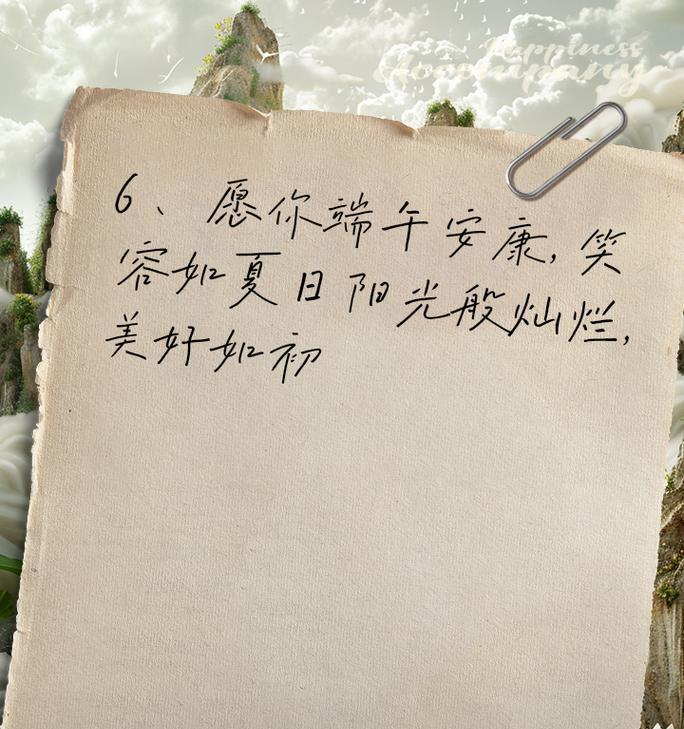 Happiness
Accompany
6、愿你端午安康,笑
容如夏日阳光般灿烂,
美好如初